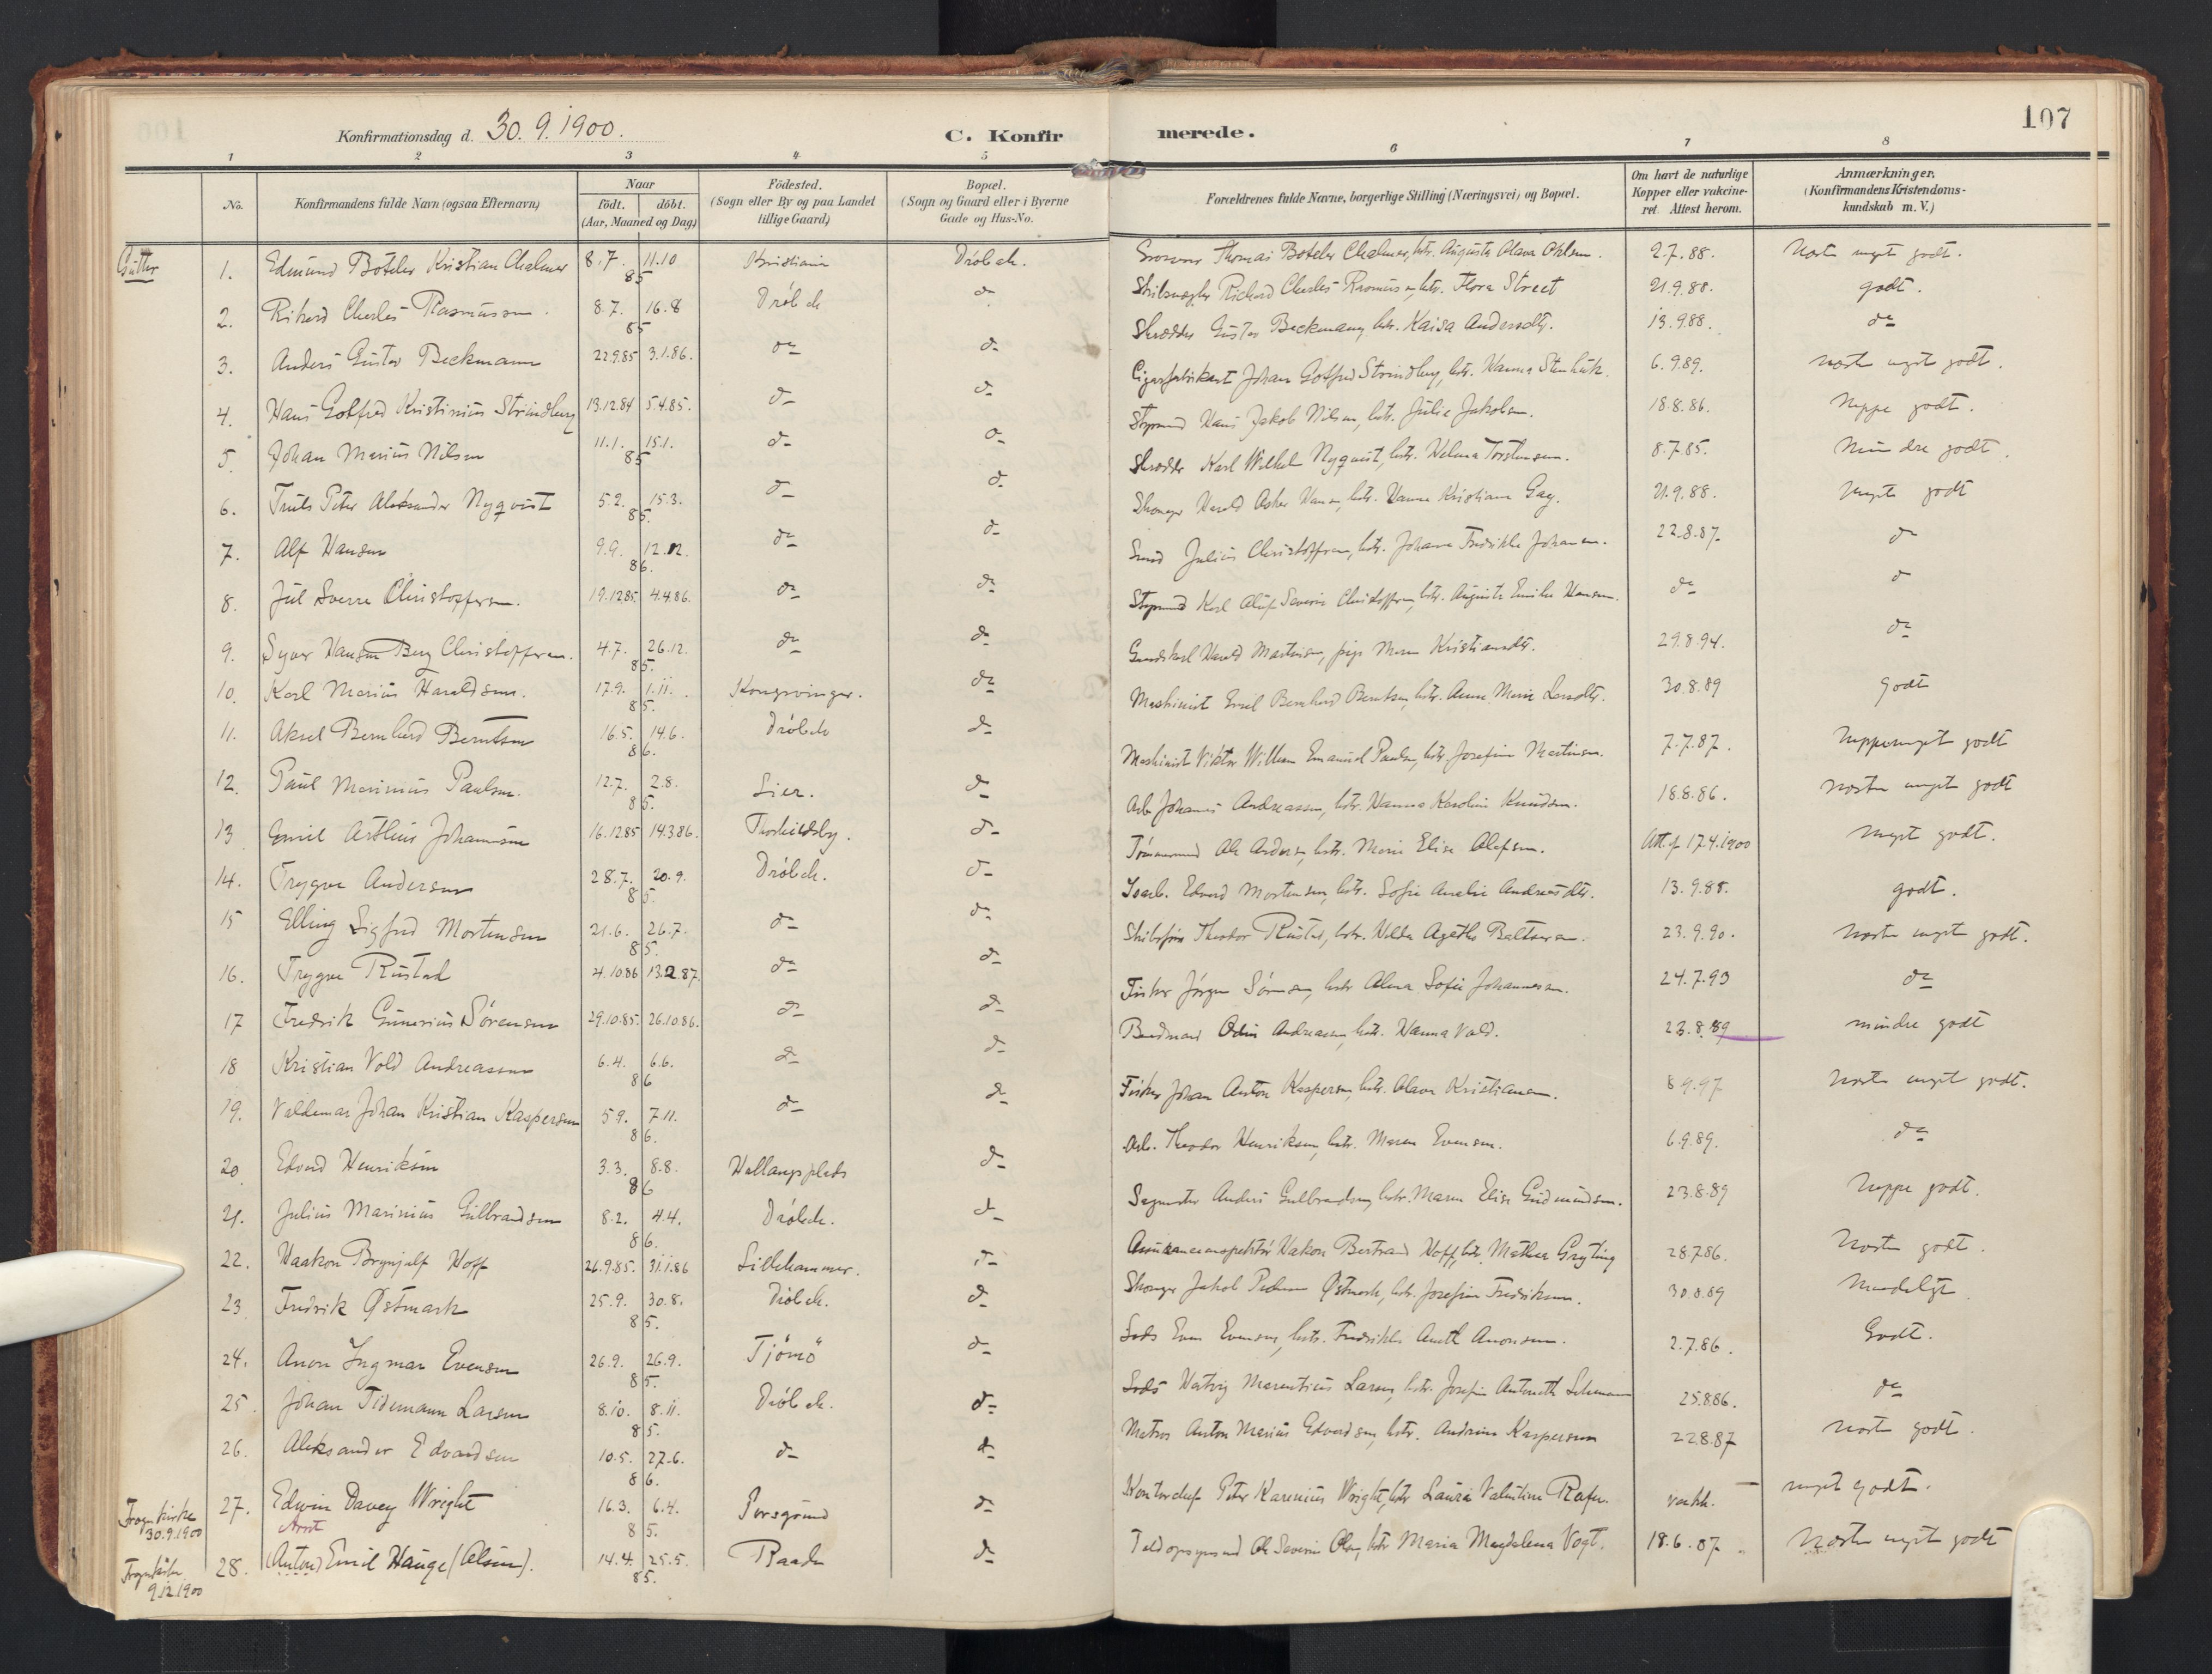 107
Konfirmationsdag d. 30.9.1900. C. Konfirmerede.
1 2 3 4 5 6 7 8
No. Konfirmandens fulde Navn (ogsaa Efternavn) Naar födt. döbt. (Aar, Maaned og Dag) Födested. (Sogn eller By og paa Landet tillige Gaard) Bopæl. (Sogn og Gaard eller i Byerne Gade og Hus-No. Forældrenes fulde Navne, borgerlige Stilling (Næringsvei) og Bopæl. Om havt de naturlige Kopper eller vakcineret Attest herom. Anmærkninger. (Konfirmandens Kristendomskundskab m. V.)
Gutter 1. Edmund Boteler Kristian Chalmer 8.7. 11.10 85 Kristiania Dröbak. Thomas Boteler Chalmer, htr. Augusta Olava Ohlsen. 2.7.88. Næsten meget godt.
2. Rikard Charles Rasmussen. 8.7. 16.8 85 Dröbak do Richard Charles Rasmussen, htr. Flora Street 21.9.88. godt.
3. Anders Gustav Beckmann 22.9.85 3.1.86. do do Skrædder Gustav Beckmann, htr. Kaisa Andersdtr. 13.9.88. do
4. Hans Gotfred Kristinius Strindberg 13.12.84 5.4.85. do do Cigarfabrikant Johan Gotfred Strindberg, htr. Hanna Stenhuk. 6.9.89. næsten meget godt.
5. Johan Marius Nilsen 11.1. 15.1. 85 do do Styrmand Hans Jakob Nilsen, htr. Julie Jakobsen. 18.8.86. Neppe godt.
6. Truls Peter Aleksander Nyqvist 5.2. 15.3. 85. do do Skrædder Karl Wilhelm Nyquist, htr. Helma Torstensen. 8.7.85. Mindre godt.
7. Alf Hansen 9.9. 12.12. 86. do do Skomager Harald Hansen, htr. Hanna Kristiane Gay. 21.9.88. Meget godt
8. Jul Sverre Christoffersen. 19.12.85 4.4.86. do do Smed Julius Christoffersen, htr. Johanne Fredrikke Johansen. 22.8.87. do
9. Syver Hansen Berg Christoffersen. 4.7. 26.12. 85. do do Styrmand Karl Oluf Severin Christoffersen, htr. Augusta Emilie Hansen. do do
10. Karl Marius Haraldsen. 17.9. 1.11. 85. Kongsvinger. do Gaardskarl Harald Martinsen, pige Maren Kristiansdtr. 29.8.94. do
11. Aksel Bernhard Berntsen 16.5. 14.6. 86. Dröbak do Maskinist Emil Bernhard Berntsen, htr. Anne Marie Larsdtr. 30.8.89 godt
12. Paul Marinius Paulsen. 12.7. 2.8. 85. Lier. do Maskinist Viktor William Emanuel Paulsen, htr. Josefine Martinsen. 7.7.87. Neppe meget godt
13. Emil Johannesen 16.12.85 14.3.86. do Arb. Johannes Andreassen, htr. Hanna Karoline Knudsen. 18.8.86. næsten meget godt
14. Trygve Andersen 28.7. 20.9. 85. Dröbak. do Tömmermand Ole Andersen, htr. Marie Elise Olafsen. Att. af 17.4.1900 meget godt.
15 Elling Sigfred Mortensen 21.6. 26.7. 85. do do Edvard Mortensen, htr. Sofie Amalie Andreasdtr. 13.9.88. godt.
16. Trygve Rustad 4.10.86 13.2.87. do do Theodor Rustad, htr. Hilda Agathe Baltsersen. 23.9.90. Næsten meget godt.
17 Fredrik Gunerius Sörensen 29.10.85. 26.10.86. do do Fisker Jörgen Sörensen, htr. Alma Sofie Johannesen. 24.7.93 do
18 Kristian Vold Andreassen 6.4. 6.6. 86 do do Odin Andreassen, htr. Hanna Vold. 23.8.89 mindre godt
19. Valdemar Johan Kristian Kaspersen 5.9. 7.11. 86. do do Fisker Johan Anton Kaspersen, htr. Olava Kristiansen. 8.9.97 Næsten meget godt.
20 Edvard Henriksen 3.3. 8.8. 86 Hallangsplads do Arb. Theodor Henriksen, htr. Maren Evensen. 6.9.89. do
21. Julius Marinius Gulbrandsen 8.2. 4.4. 86. Dröbak. do Sagmester Anders Gulbrandsen, htr. Maren Elise Gudmundsen. 23.8.89 Neppe godt.
22. Haakon Borgnjulf Hoff 26.9.85. 31.1.86 Lillehammer. do Hakon Bertrand Hoff, htr. Mathea Gryting 28.7.86. Næsten godt.
23 Fredrik Østmark 25.9. 30.8. 85. Dröbak. do Skomager Jakob Pedersen Østmark, htr. Josefine Fredriksen. 30.8.89 Maadeligt.
24. Anon Ingmar Evensen 26.9. 26.9. 85. Tjömö do Lods Even Evensen, htr. Fredrikke Anonsen. 2.7.86. Godt.
25. Johan Tidemann Larsen 8.10. 8.11. 85. Dröbak. do Lods Hartvig Larsen, htr. Josefine Antonette 25.8.86. do
26. Aleksander Edvardsen 10.5. 27.6. 86. do do Matros Anton Marius Edvardsen, htr. Andrine Kaspersen 22.8.87 Næsten godt.
Frogn kirke 30.9.1900 27. Edwin Davey Wright 16.3. 6.4. 85. Porsgrund do Kontorchef Peter Karenius Wright, htr. Laura Valentine Rafn. vakk. meget godt.
Frogn kirke 9.12.1900 28. (Anton) Emil Hauge (Olsen). 14.4. 25.5. 85. Raade do Toldopsynsmd Ole Severin Olsen, htr. Maria Magdalena Vogt. 18.6.87 Næsten meget godt